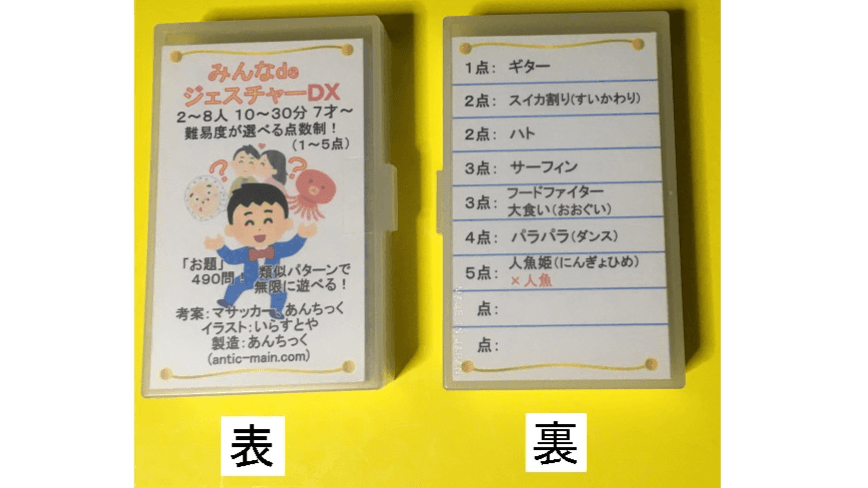 みんなde
ジェスチャーDX
2～8人 10～30分 7才～
難易度が選べる点数制！
（1～5点）
？
？
「お題」
490問！
類似パターンで
無限に遊べる！
考案：マサッカー、あんちっく
イラスト：いらすとや
製造：あんちっく
(antic-main.com)
表
1点： ギター
2点： スイカ割り(すいかわり)
2点： ハト
3点： サーフィン
3点： フードファイター
大食い(おおぐい)
4点： パラパラ(ダンス)
5点： 人魚姫(にんぎょひめ)
×人魚
点：
点：
裏